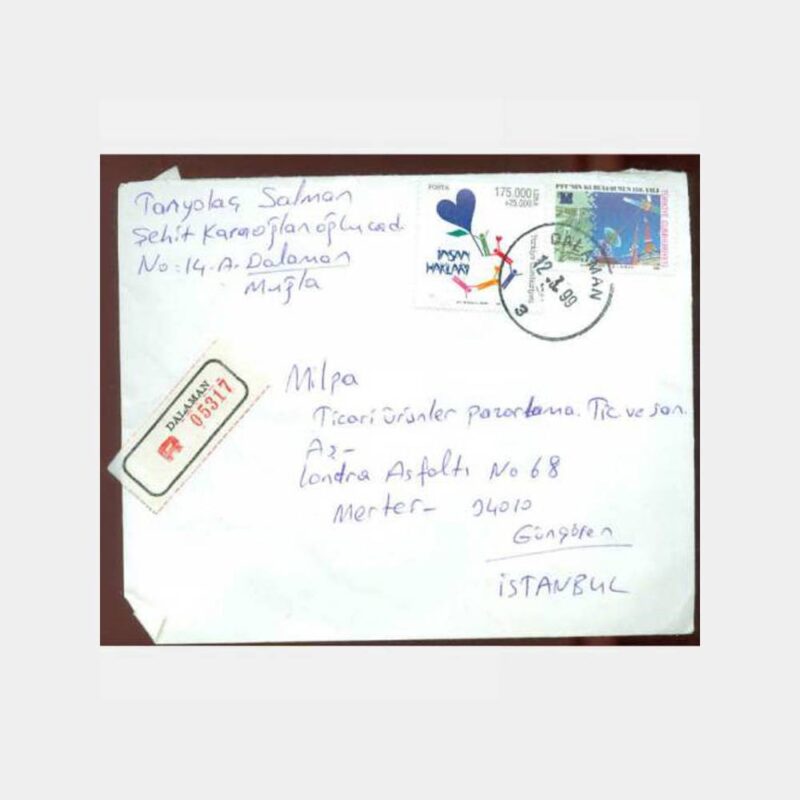 Tanyolaç Salman
Şehit Karaoğlanoğlu cad.
No: 14. A. Dalaman
Muğla
POSTA
175.000 LİRA
+25.000
İNSAN
HAKLARI
Türkiye Cumhuriyeti
PTT'NİN KURULUŞUNUN 158. YILI
TÜRKİYE CUMHURİYETİ
DALAMAN
99
3
DALAMAN
R 05317
Milpa
Ticari ürünler pazarlama. Tic. ve san.
Aş-
Londra Asfaltı No 68
Merter- 34010
Güngören
İSTANBUL